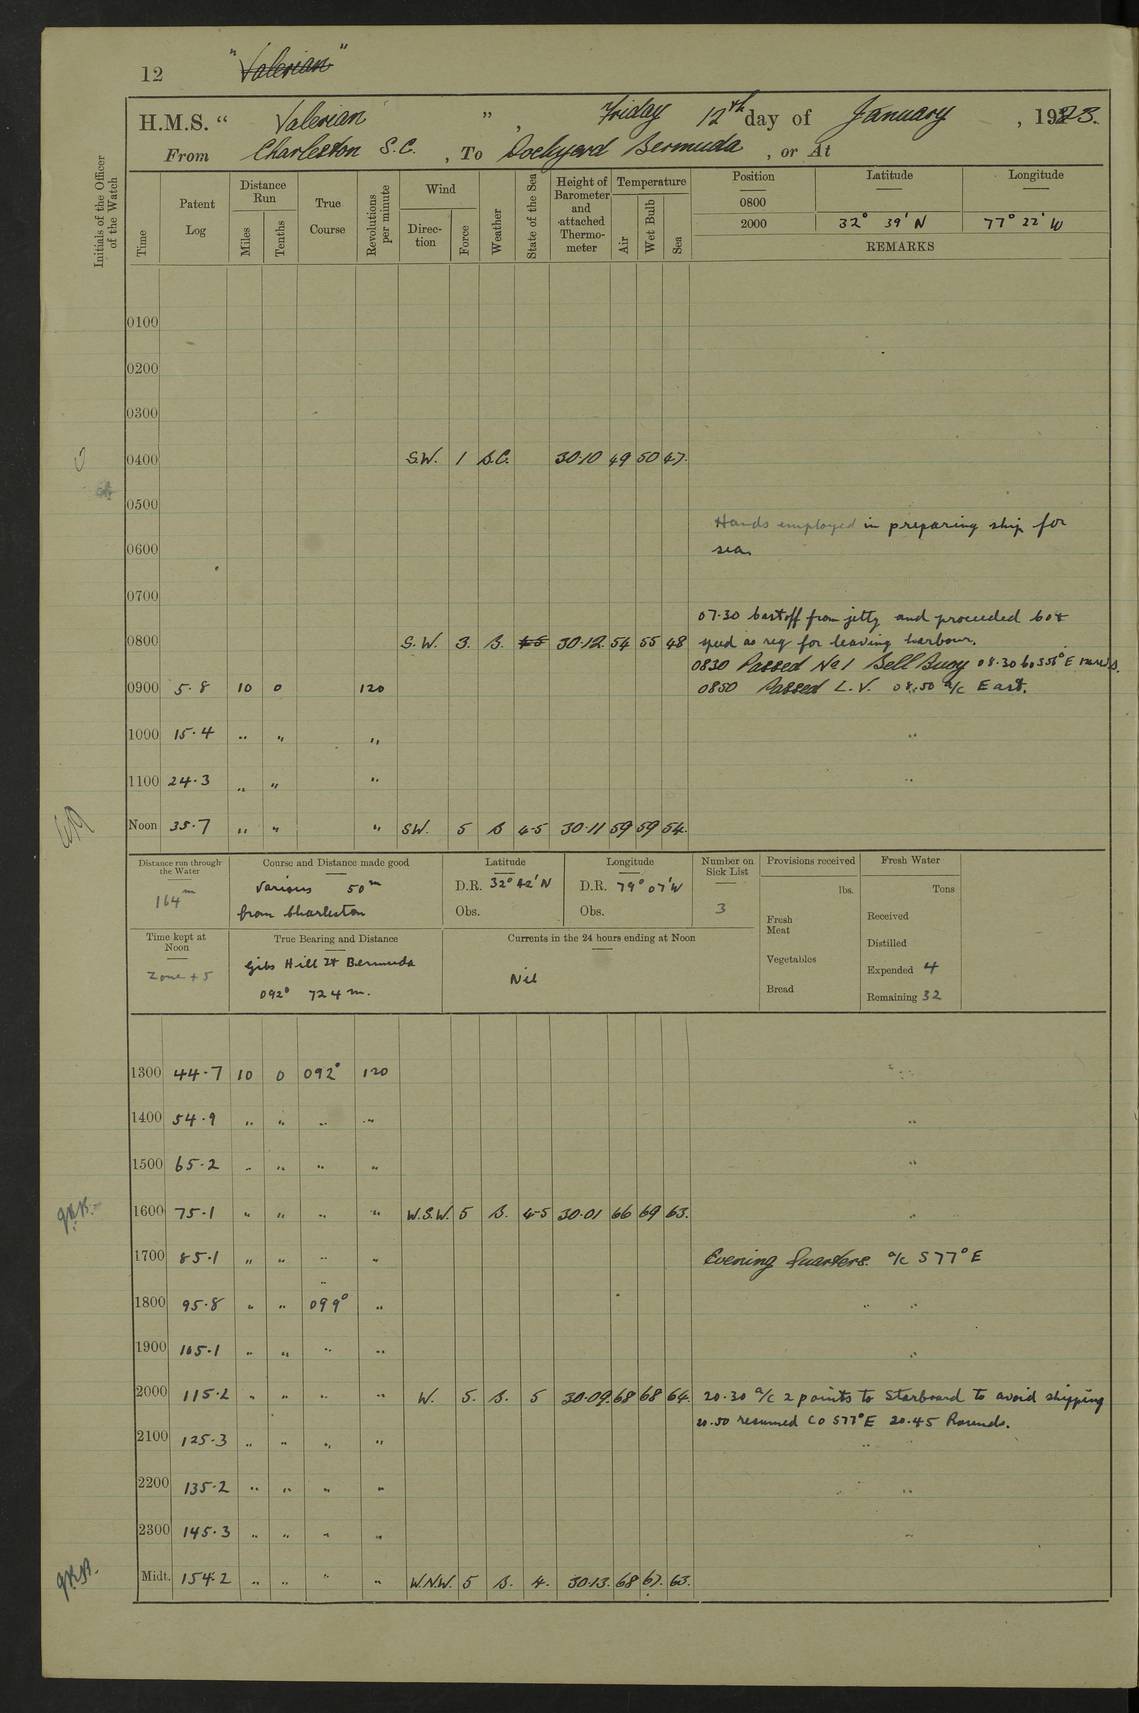 12 "Valerian"
H.M.S. " Valerian ", Friday 12th day of January, 1923.
From Charleston S.C., To Dockyard Bermuda, or At
Initials of the Officer of the Watch
Time Patent Log Distance Run Miles Tenths True Course Revolutions per minute Wind Direction Force Weather State of the Sea Height of Barometer and attached Thermometer Temperature Air Wet Bulb Sea Position Latitude Longitude
0800
2000 32° 39' N 77° 22' W
REMARKS
0100
0200
0300
0400 S.W. 1 B.C. 30.10 49 50 47.
0500
Hands employed in preparing ship for
0600 sea.
0700
07.30 Cast off from jetty and proceeded Co &
0800 S.W. 3. B. 30.12. 54 55 48 speed as req for leaving harbour.
0830 Passed No 1 Bell Buoy 08.30 Co
0900 5.8 10 0 120 0850 Passed L.V. 08.50 a/c East.
1000 15.4 " " "
1100 24.3 " " "
Noon 35.7 " " " SW. 5 B 4-5 30.11 59 59 54.
Distance run through the Water 164m
Course and Distance made good Various 50m
from Charleston
Latitude D.R. 32° 42' N
Obs.
Longitude D.R. 79° 07' W
Obs.
Number on Sick List 3
Provisions received lbs.
Fresh Meat
Vegetables
Bread
Fresh Water Tons
Received
Distilled
Expended 4
Remaining 32
Time kept at Noon Zone +5
True Bearing and Distance
Gibs Hill Lt Bermuda
092° 724 m.
Currents in the 24 hours ending at Noon
Nil
1300 44.7 10 0 092° 120
1400 54.9 " " " "
1500 65.2 " " " "
1600 75.1 " " " " W.S.W. 5 B. 4-5 30.01 66 69 63.
1700 85.1 " " " " Evening Quarters. a/c S77°E
1800 95.8 " " 099° "
1900 105.1 " " " "
2000 115.2 " " " " W. 5. B. 5 30.09. 68 68 64. 20.30 a/c 2 points to Starboard to avoid shipping
20.50 resumed Co S77°E 20.45 Rounds.
2100 125.3 " " " "
2200 135.2 " " " "
2300 145.3 " " " "
Midt. 154.2 " " " " W.N.W. 5 B. 4. 30.13. 68 67. 63.